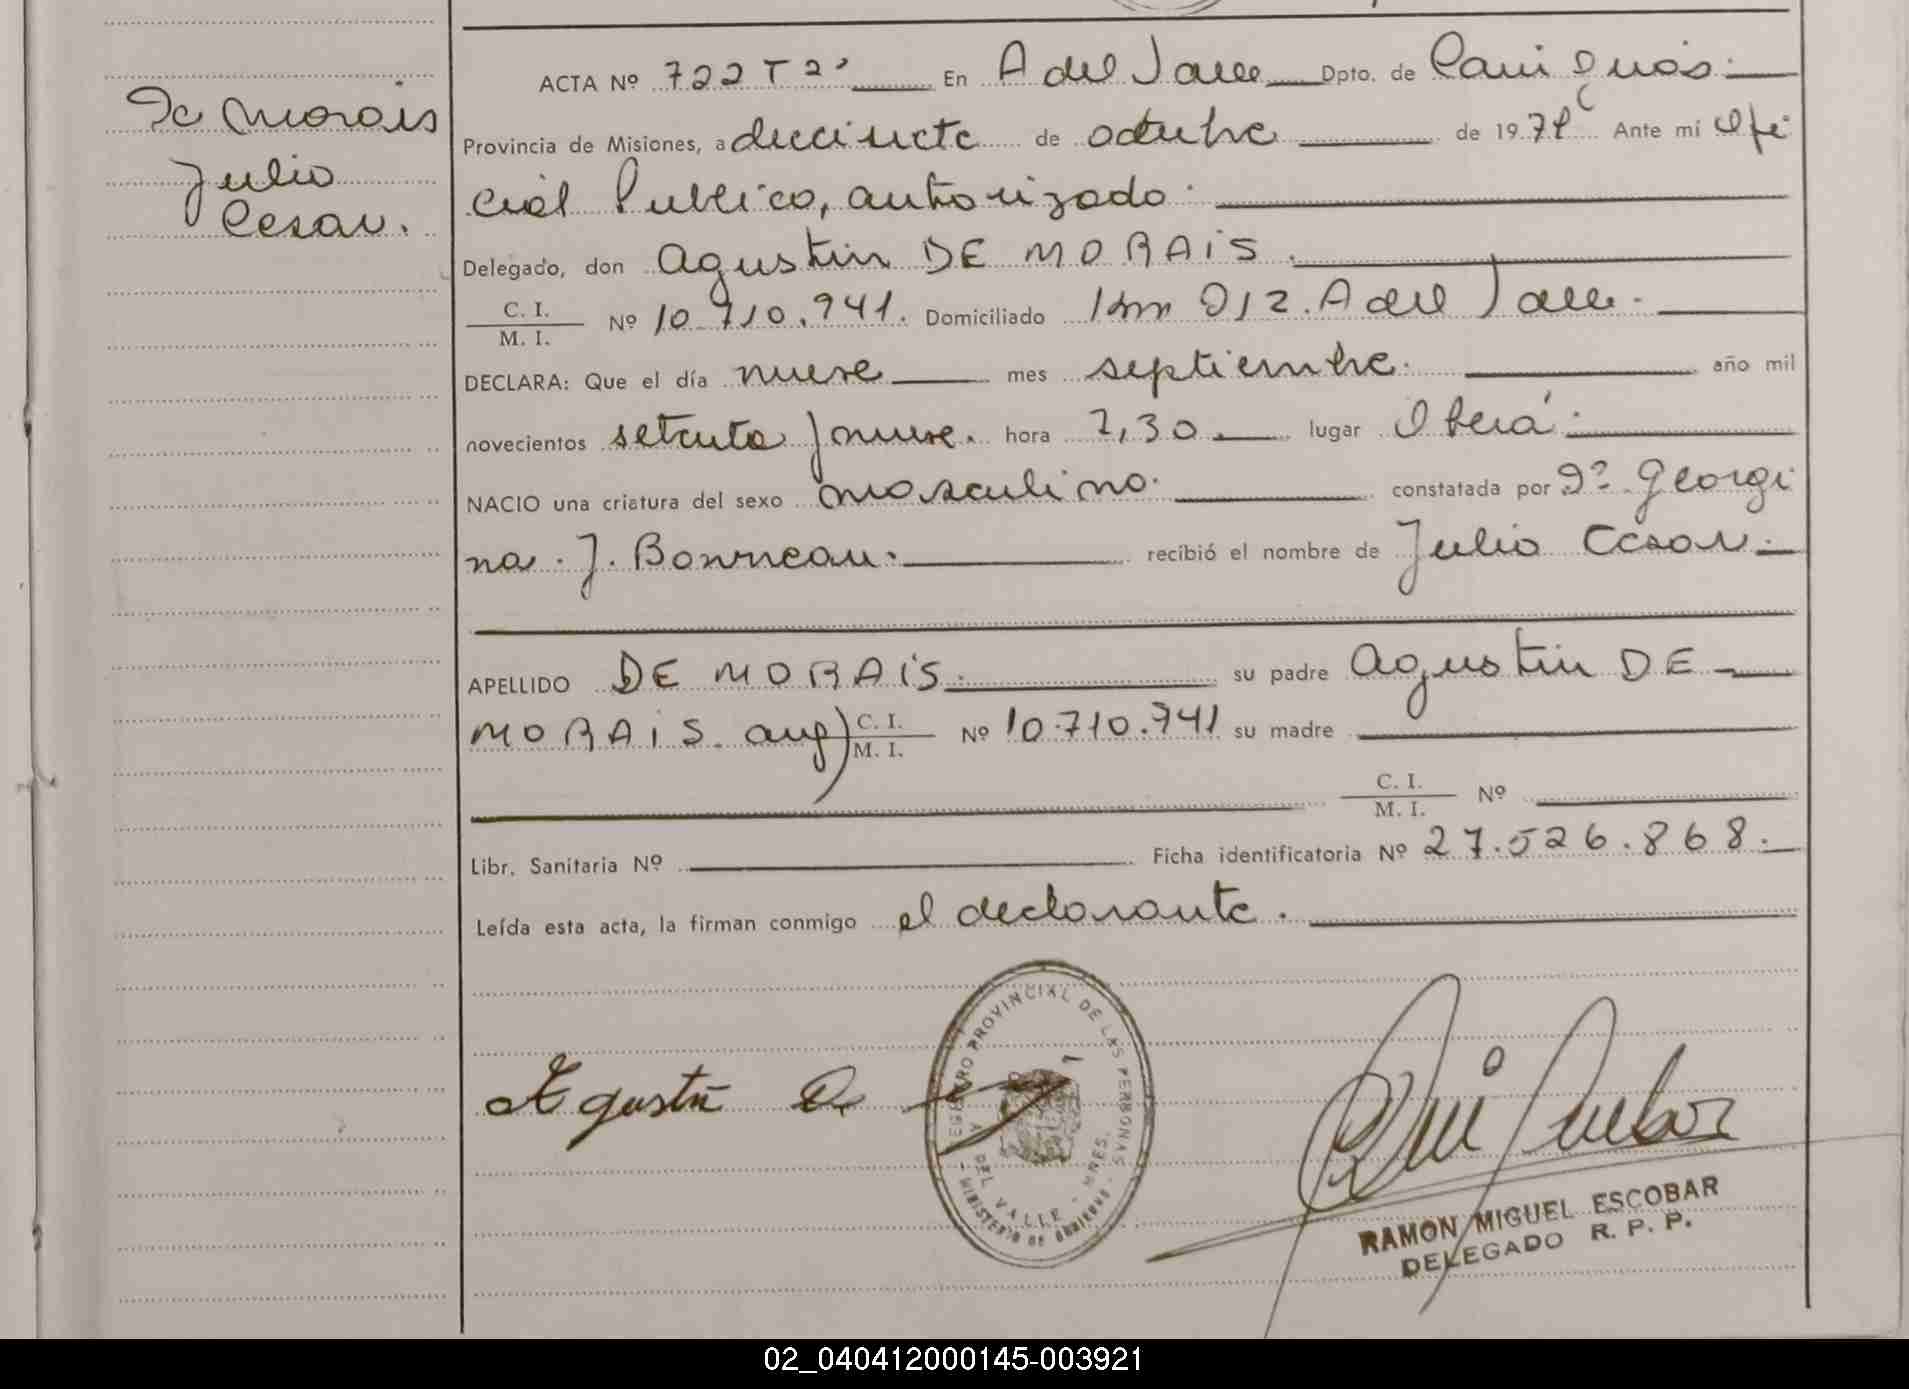 De Morais
Julio
Cesar.
ACTA Nº 722 T 2º En A del Valle Dpto. de Cainguás.
Provincia de Misiones, a diecisiete de octubre de 197 Ante mí Ofi
cial Publico, autorizado.
Delegado, don Agustin DE MORAIS.
C. I.
M. I. Nº 10.710.941. Domiciliado Km 212. A del Valle.
DECLARA: Que el día nueve mes septiembre. año mil
novecientos setenta y nueve. hora 7,30. lugar Oberá.
NACIO una criatura del sexo masculino. constatada por Dª Georgi
na. J. Bonneau. recibió el nombre de Julio Cesar.
APELLIDO DE MORAIS. su padre Agustin DE
MORAIS. arg) C. I.
M. I. Nº 10.710.941 su madre
C. I.
M. I. Nº
Libr. Sanitaria Nº Ficha identificatoria Nº 27.526.868.
Leída esta acta, la firman conmigo el declarante.
Agustin D.
REGISTRO PROVINCIAL DE LAS PERSONAS
A DEL VALLE - MNES.
- MINISTERIO DE GOBIERNO -
RAMON MIGUEL ESCOBAR
DELEGADO R. P. P.
02_040412000145-003921